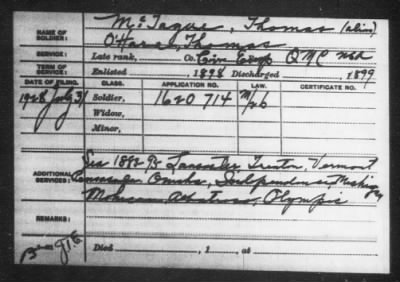 NAME OF SOLDIER: McTague, Thomas (alias)
O'Hare, Thomas
SERVICE: Late rank, Co. Civ Corp QMC USA
TERM OF SERVICE: Enlisted 1898 Discharged , 1899
DATE OF FILING. CLASS. APPLICATION NO. LAW. CERTIFICATE NO.
1928 July 31 Soldier, 1620714
Widow,
Minor,
ADDITIONAL SERVICES: 1892 95 Lancaster Trenton, Vermont
Omaha, Independence
Mohican Albatross, Olympia
REMARKS:
Died , 1 , at